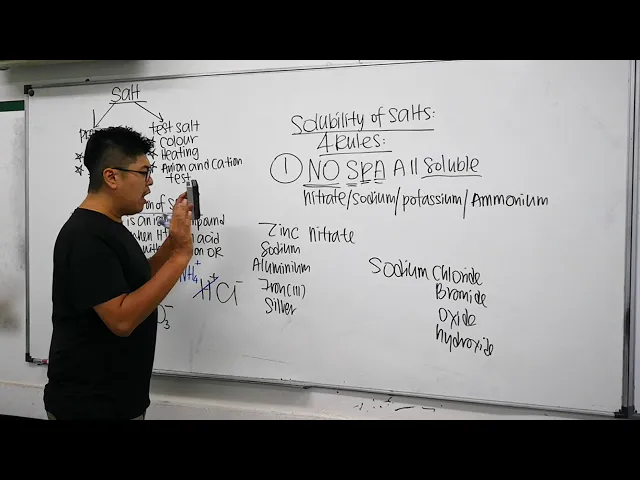 Salt
test salt
Colour
Heating
Anion and cation
test
is an
when H+ acid
OR
NH4+
H+Cl-
3-
Solubility of salts:
4 Rules:
① NO SPA All soluble
nitrate/sodium/potassium/Ammonium
Zinc nitrate
Sodium
Aluminium
Iron(III)
Silver
Sodium Chloride
Bromide
Oxide
hydroxide